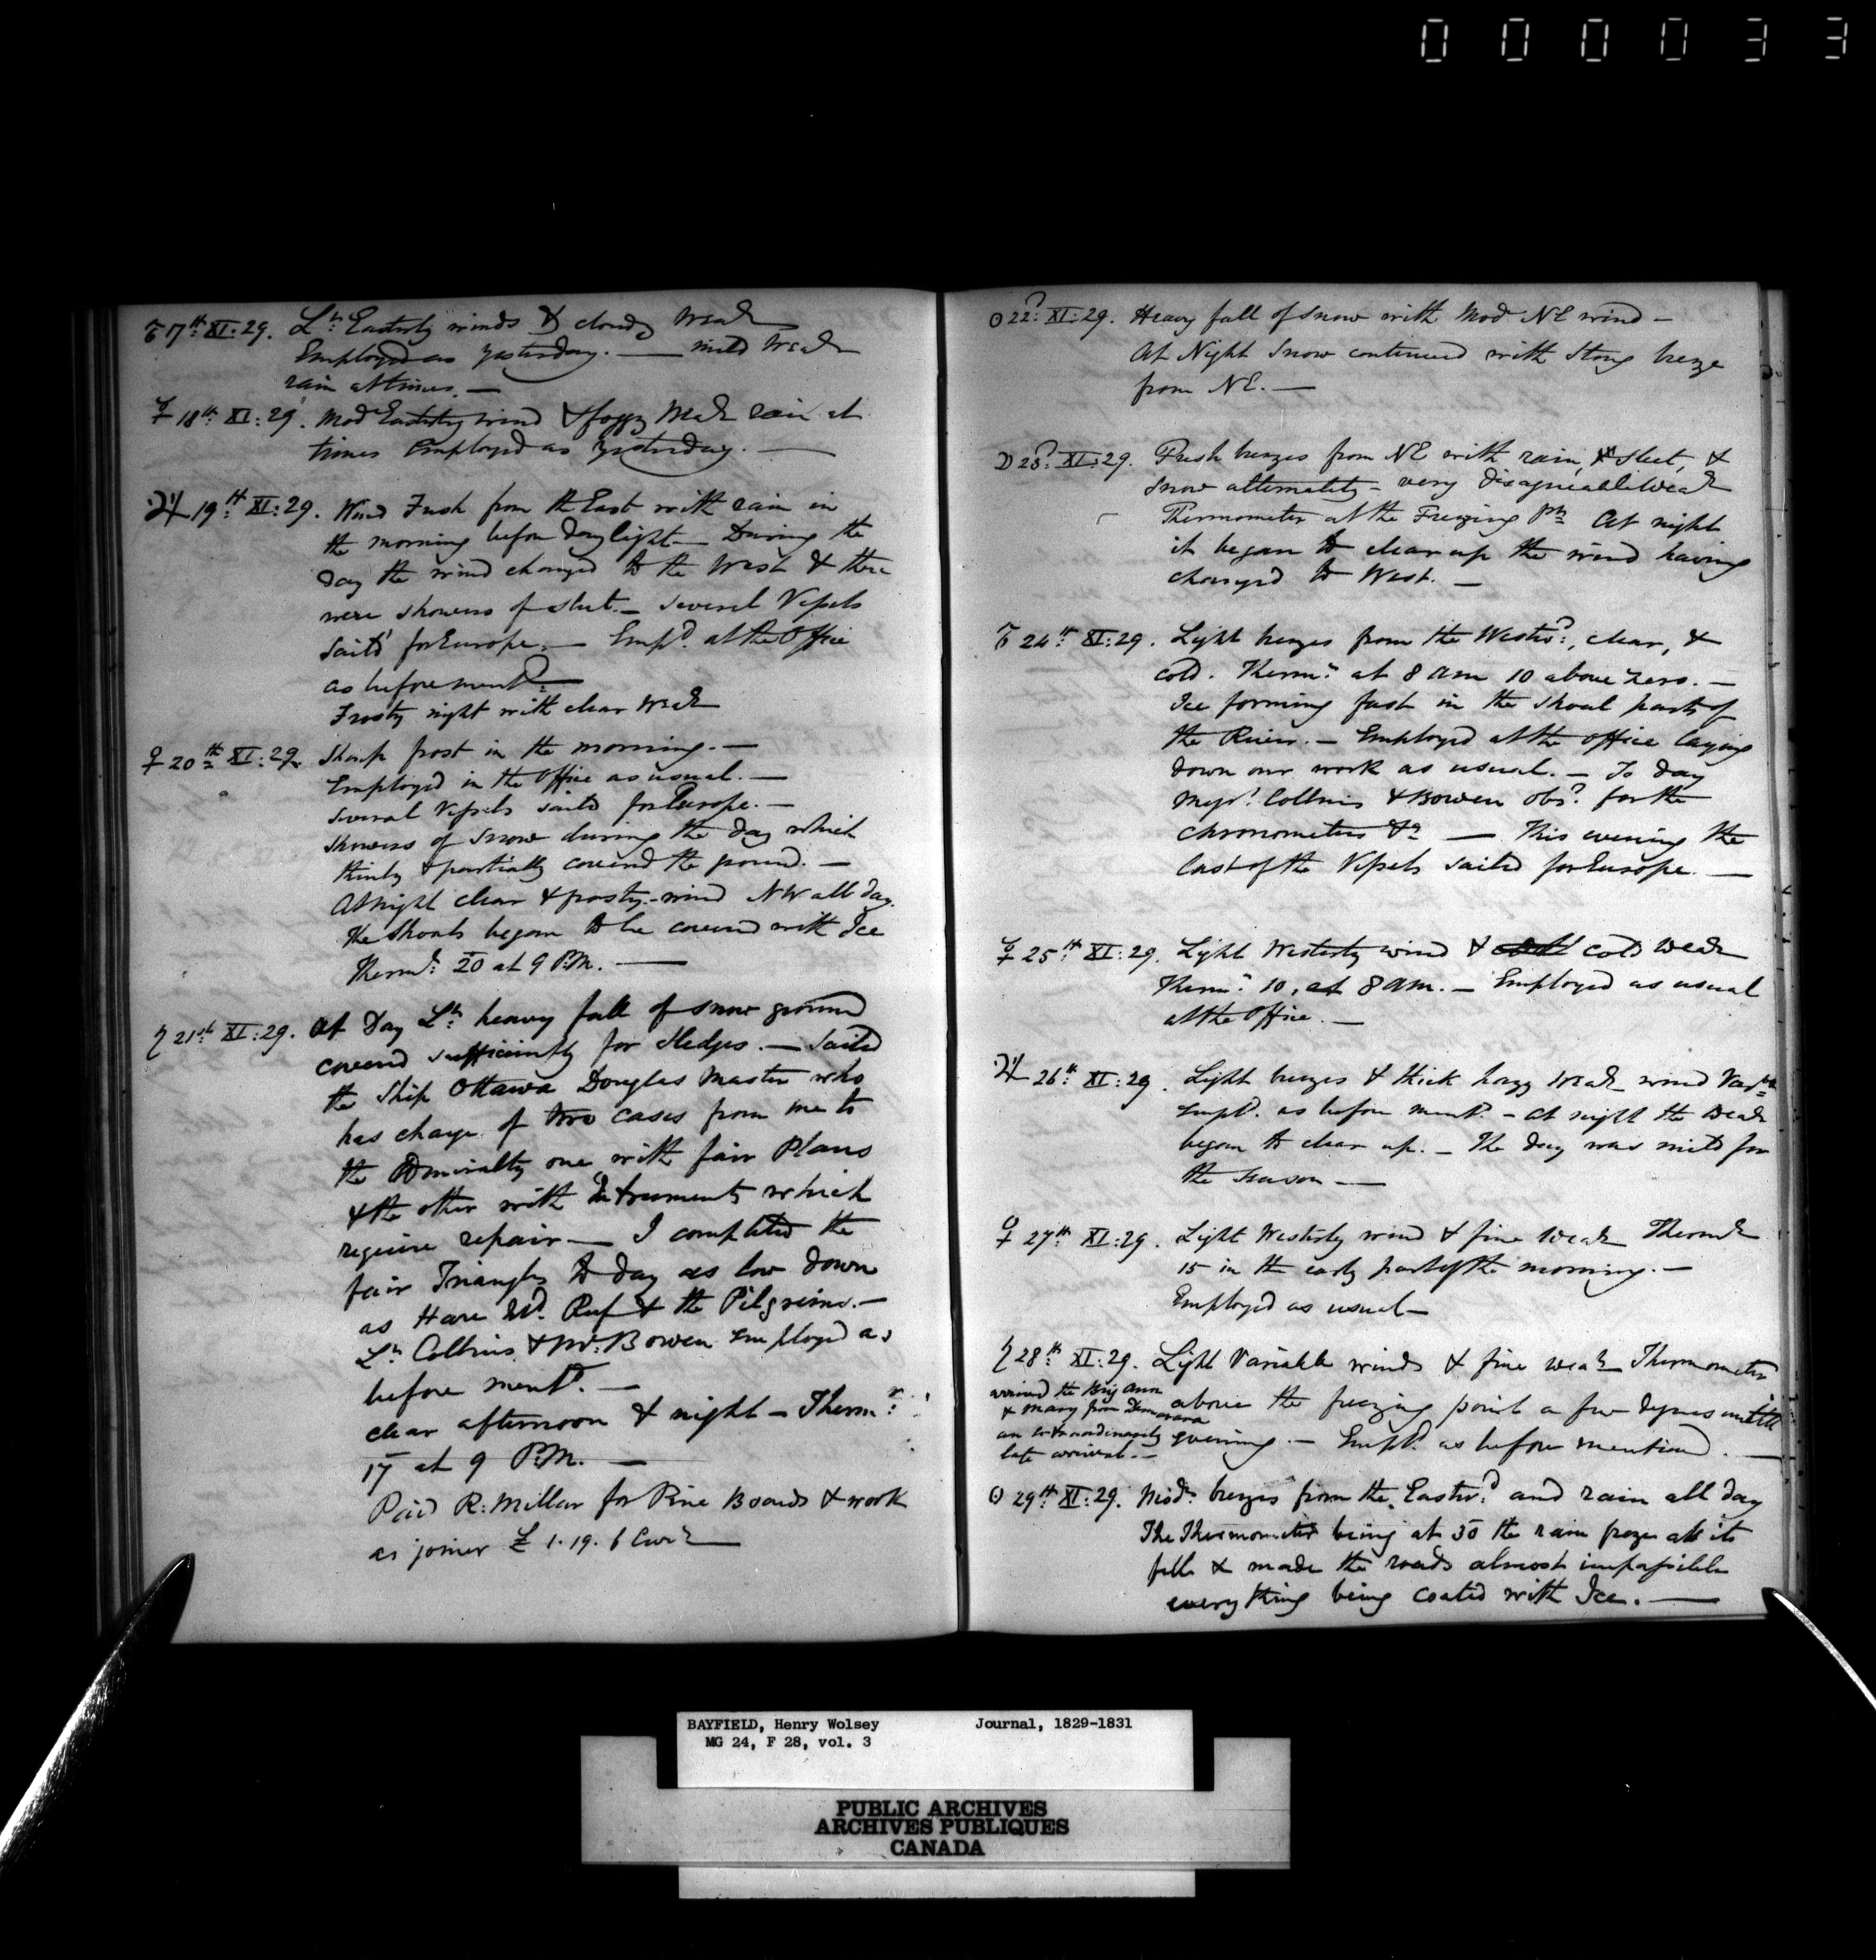 000033
♂ 17th XI:29. Lt Easterly winds & cloudy Wear
Employed as yesterday. — mild Wear
rain at times. —
☿ 18th XI:29. Mod Easterly wind & foggy Wear rain at
times Employed as yesterday. —
♃ 19th XI:29. Wind Fresh from the East with rain in
the morning before daylight — During the
day the wind changed to the West & there
were showers of sleet. — Several Vessels
sail'd for Europe. — Empd. at the Office
as before mentd. —
Frosty night with clear Wear
♀ 20th XI:29. Sharp frost in the morning. —
Employed in the Office as usual. —
Several Vessels sailed for Europe. —
Showers of Snow during the day which
thinly & partially covered the ground. —
At night clear & frosty – wind NW all day.
the Shoals began to be covered with Ice
Thermr: 20 at 9 P.M. —
♄ 21st XI:29. At Day Lt: heavy fall of snow ground
covered sufficiently for sledges. — Sailed
the Ship Ottawa Douglas Master who
has charge of two cases from me to
the Admiralty one with fair Plans
& the other with Instruments which
require repair — I completed the
fair Triangles to day as low down
as Hare Isd. Reef & the Pilgrims. —
Lt Collins & Mr: Bowen employed as
before mentd. —
clear afternoon & night — Thermr:
17 at 9 P.M. —
Paid R: Millar for Pine Boards & work
as joiner £ 1.19.6 Curr —
☉ 22d: XI:29. Heavy fall of snow with Mod NE wind —
At Night Snow continued with Strong breeze
from NE. —
☽ 23d: XI:29. Fresh breezes from NE with rain, & sleet, &
snow alternately – very disagreeable Wear
Thermometer at the Freezing Pt: At night
it began to clear up the wind having
changed to West. —
♂ 24th XI:29. Light breezes from the Westwd:, clear, &
cold. Thermr: at 8 am 10 above Zero. —
Ice forming fast in the shoal parts of
the River. — Employed at the office laying
down our work as usual. — To day
Messrs. Collins & Bowen obsd. for the
chronometers &c — This evening the
last of the Vessels sailed for Europe. —
☿ 25th XI:29. Light Westerly wind & cold Wear
Thermr: 10, at 8 am. — Employed as usual
at the Office. —
♃ 26th: XI:29. Light breezes & thick hazy Wear wind Varble
Empd. as before mentd. – at night the Wear
began to clear up. — The day was mild for
the season —
♀ 27th XI:29. Light Westerly wind & fine Wear Thermr
15 in the early part of the morning. —
Employed as usual —
♄ 28th: XI:29. Light Variable winds & fine wear Thermometer
above the freezing point a few degrees untill
evening. — Empd. as before mentioned. —
arrived the Brig Ann
& Mary from Demarara
an extraordinarily
late arrival. —
☉ 29th XI:29. Modt. breezes from the Eastwd: and rain all day
The Thermometer being at 30 the rain froze as it
fell & made the roads almost impassible
every thing being coated with Ice. —
BAYFIELD, Henry Wolsey Journal, 1829-1831
MG 24, F 28, vol. 3
PUBLIC ARCHIVES
ARCHIVES PUBLIQUES
CANADA